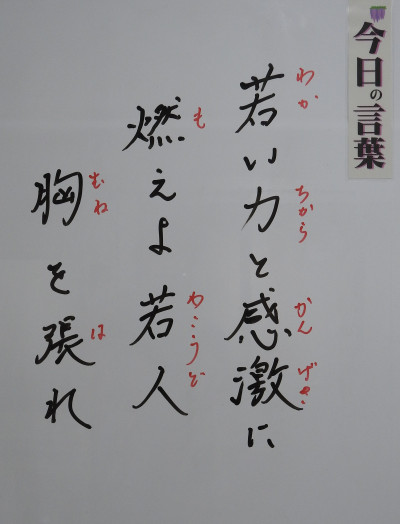 今日の言葉
若い力と感激に
わか ちから かん げき
燃えよ若人
も わこうど
胸を張れ
むね は